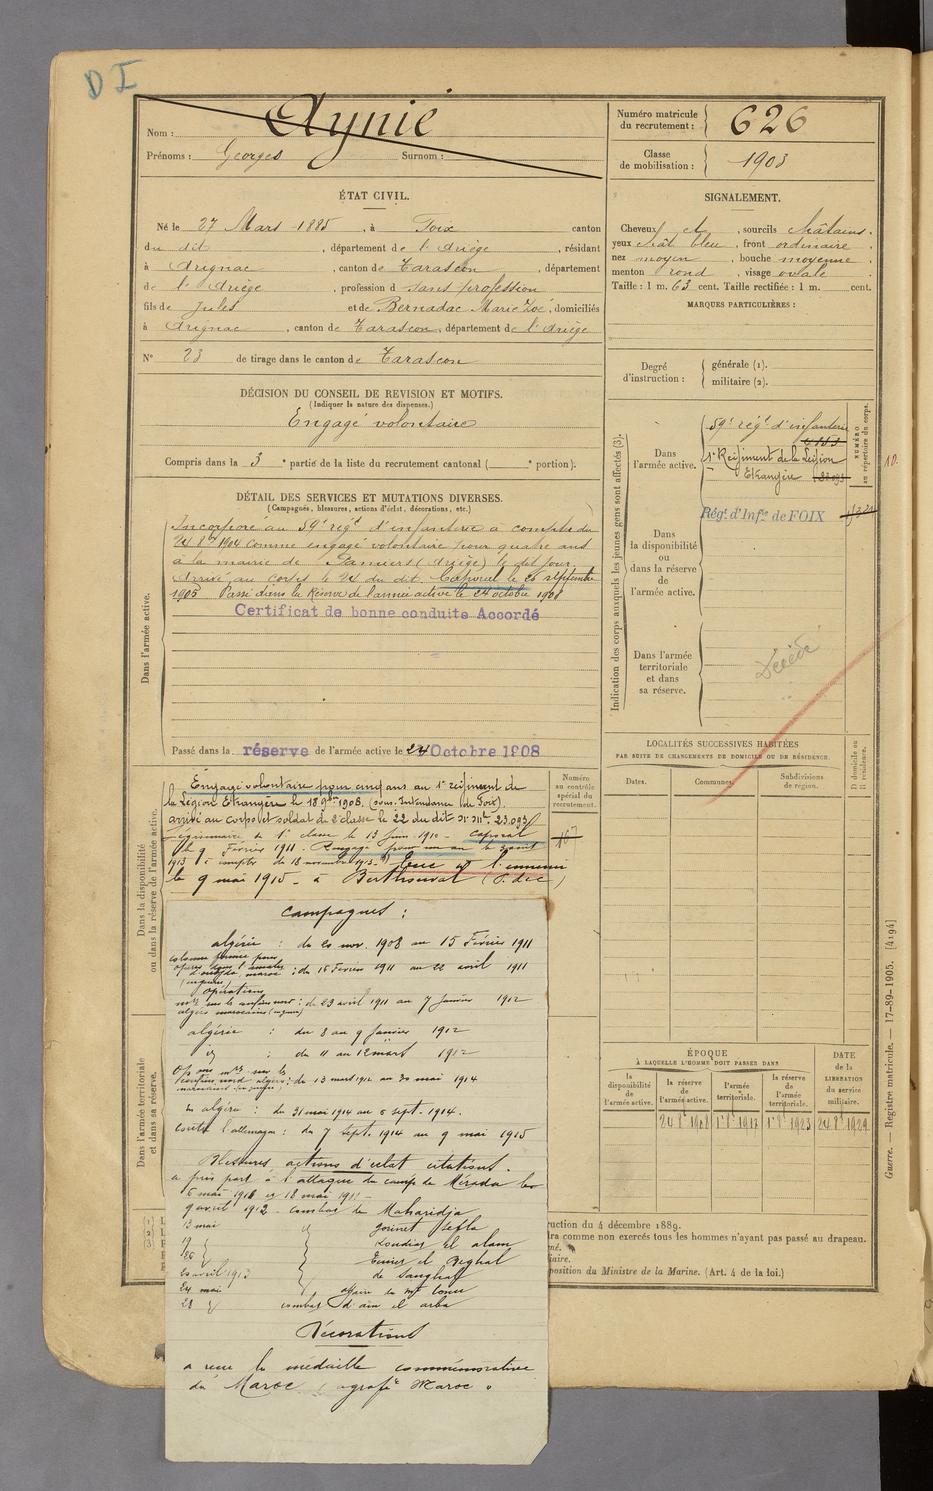 D I
Nom : Aynié
Prénoms : Georges Surnom :
Numéro matricule du recrutement : 626
Classe de mobilisation : 1903
ÉTAT CIVIL.
Né le 27 Mars 1885, à Foix canton
du dit, département de l'Ariège, résidant
à Arignac, canton de Tarascon, département
de l'Ariège, profession de sans profession
fils de Jules et de Bernadac Marie Zoé, domiciliés
à Arignac, canton de Tarascon, département de l'Ariège
N° 23 de tirage dans le canton de Tarascon
SIGNALEMENT.
Cheveux et, sourcils châtains.
yeux chât bleu, front ordinaire
nez moyen, bouche moyenne
menton rond, visage ovale
Taille : 1 m. 63 cent. Taille rectifiée : 1 m. cent.
MARQUES PARTICULIÈRES :
DÉCISION DU CONSEIL DE REVISION ET MOTIFS.
(Indiquer la nature des dispenses.)
Engagé volontaire
Compris dans la 3e partie de la liste du recrutement cantonal ( e portion).
Degré d'instruction :
générale (1).
militaire (2).
DÉTAIL DES SERVICES ET MUTATIONS DIVERSES.
(Campagnes, blessures, actions d'éclat, décorations, etc.)
Dans l'armée active.
Incorporé au 59e régt d'infanterie à compter du
24 8bre 1904 comme engagé volontaire pour quatre ans
à la mairie de Pamiers (Ariège) le dit jour.
Arrivé au corps le 24 du dit. Caporal le 26 septembre
1905 Passé dans la Réserve de l'armée active le 24 octobre 1908
Certificat de bonne conduite Accordé
Passé dans la réserve de l'armée active le 24 Octobre 1908
Indication des corps auxquels les jeunes gens sont affectés (3).
NUMÉRO au répertoire du corps.
Dans l'armée active.
59e régt d'infanterie
1er Régiment de la Légion
Etrangère 23.093
10.
Régt d'Infie de FOIX
Dans la disponibilité ou dans la réserve de l'armée active.
Dans l'armée territoriale et dans sa réserve.
Décédé
Dans la disponibilité ou dans la réserve de l'armée active.
Engagé volontaire pour cinq ans au 1er régiment de
la Légion Etrangère le 18 9bre 1908. (sous-Intendance de Foix).
arrivé au corps et soldat de 2e classe le 22 du dit. N° Mle 23.093
Légionnaire de 1e classe le 13 Juin 1910 - Caporal
le 9 Février 1911. Rengagé pour un an le 3 avril
1913 à compter du 18 novembre 1913. Tué à l'ennemi
le 9 mai 1915 - à Berthonval (P. de C.)
Numéro au contrôle spécial du recrutement.
167
LOCALITÉS SUCCESSIVES HABITÉES
PAR SUITE DE CHANGEMENTS DE DOMICILE OU DE RÉSIDENCE.
Dates. Communes. Subdivisions de région.
D domicile ou R résidence.
Campagnes :
algérie : du 20 nov. 1908 au 15 Février 1911
colonne formée pour
opérer dans l'amalat
d'oudjda, maroc : du 16 Février 1911 au 22 avril 1911
(en guerre)
opérations
mres sur les confins nord : du 23 avril 1911 au 7 Janvier 1912
algéro marocains (en guerre)
algérie : du 8 au 9 Janvier 1912
id : du 11 au 12 mars 1912
Opons mres sur les
confins nord algéro : du 13 mars 1912 au 30 mai 1914
marocains (en guerre)
en algérie : du 31 mai 1914 au 6 sept. 1914.
contre l'allemagne : du 7 sept. 1914 au 9 mai 1915
Blessures, actions d'éclat citations.
a pris part à l'attaque du camp de Mérada les
6 mai 1911 et 18 mai 1911 -
9 avril 1912 - combat de Maharidja
13 mai
19
26
20 avril 1913
24 mai affaire de
28 combat d'ain el arba
Décorations
a reçu la médaille commémorative
du Maroc (agrafe Maroc"
Dans l'armée territoriale et dans sa réserve.
ÉPOQUE
À LAQUELLE L'HOMME DOIT PASSER DANS
la disponibilité de l'armée active.
la réserve de l'armée active.
l'armée territoriale.
la réserve de l'armée territoriale.
DATE de la LIBÉRATION du service militaire.
24 8e 1908 1er 8e 1917 1er 8e 1923 24 8e 1929
(1)
(2)
(3)
ruction du 4 décembre 1889.
ra comme non exercés tous les hommes n'ayant pas passé au drapeau.
position du Ministre de la Marine. (Art. 4 de la loi.)
Guerre. — Registre matricule. — 17-89-1905. [4194]